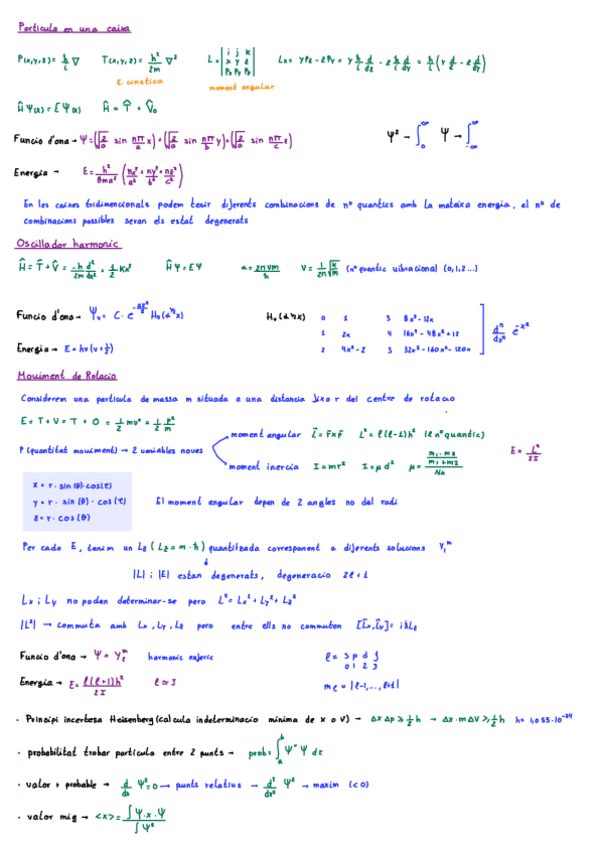 Partícula en una caixa
P(x,y,z) = ħ/i ∇   T(x,y,z) = ħ²/2m ∇²   L = | i j k / x y z / Px Py Pz |   Lx = yPz - zPy = y ħ/i d/dz - z ħ/i d/dy = ħ/i (y d/dz - z d/dy)
E. cinetica   moment angular
Ĥ Ψ(x) = E Ψ(x)   Ĥ = T̂ + V̂0
Funcio d'ona → Ψ = (√2/a sin nπ/a x) + (√2/a sin nπ/b y) + (√2/a sin nπ/c z)   Ψ² → ∫ ∞ 0   Ψ → ∫ ∞ -∞
Energia → E = h²/8ma² (nx²/a² + ny²/b² + nz²/c²)
En les caixes tridimencionals podem tenir diferents combinacions de nº quantics amb la mateixa energia, el nº de
combinacions possibles seran els estat degenerats
Oscilador harmonic
Ĥ = T̂ + V̂ = -ħ d²/2m dx² + 1/2 Kx²   Ĥ Ψ = E Ψ   α = 2πvm/ħ   V = 1/2π √k/m (nº quantic vibracional (0,1,2...)
Funcio d'ona → Ψv = C · e^-αx²/2 Hv(α^1/2 x)   Hv(α^1/2 x)   0   1   3   8x³ - 12x
1   2x   4   16x⁴ - 48x² + 12   dⁿ/dxⁿ e^-x²
Energia → E = hv(v + 1/2)   2   4x² - 2   5   32x⁵ - 160x³ - 120x
Moviment de Rotacio
Considerem una particula de massa m situada a una distancia fixa r del centre de rotacio
E = T + V = T + 0 = 1/2 mv² = 1/2 p²/m
moment angular L = r × p   L² = l(l+1)ħ² (l nº quantic)
P (quantitat moviment) → 2 variables noves   E = L²/2I
moment inercia I = mr²   I = μd²   μ = m1·m2/m1+m2 / NA
x = r · sin(θ)·cos(φ)
y = r · sin(θ) · cos(φ)   El moment angular depen de 2 angles no del radi
z = r · cos(θ)
Per cada E, tenim un Lz (Lz = m · ħ) quantitzada corresponent a diferents solucions Yl^m
|L| i |E| estan degenerats, degeneracio 2l + 1
Lx i Ly no poden determinar-se pero L² = Lx² + Ly² + Lz²
|L²| → commuta amb Lx, Ly, Lz pero entre ells no commuten [L̂x, L̂y] = iħLz
Funcio d'ona → Ψ = Yl^m   harmonic esferic   l = s p d f
0 1 2 3
Energia → E = l(l+1)ħ²/2I   l ≃ J   ml = |l-1,..., l+1|
· Principi incertesa Heisenberg (calcula indeterminacio minima de x o v) → Δx Δp ≥ 1/2 ħ → Δx · mΔV ≥ 1/2 ħ   ħ = 1,055·10⁻³⁴
· probabilitat trobar partícula entre 2 punts → prob = ∫ b a Ψ* Ψ dτ
· valor + probable → d/dx Ψ² = 0 → punts relatius → d²/dx² Ψ² → maxim (< 0)
· valor mig → <x> = ∫Ψ · x · Ψ / ∫Ψ²